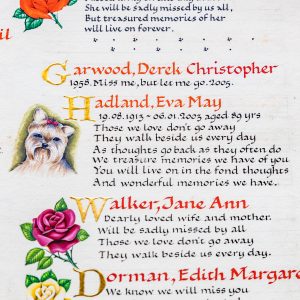 She will be sadly missed by us all,
But treasured memories of her
will live on forever.
il
Garwood, Derek Christopher
1958. Miss me, but let me go. 2005.
Hadland, Eva May
19.08.1913 - 06.01.2003 aged 89 yrs
Those we love don't go away
They walk beside us every day
As thoughts go back as they often do
We treasure memories we have of you
You will live on in the fond thoughts
And wonderful memories we have.
Walker, Jane Ann
Dearly loved wife and mother.
Will be sadly missed by all
Those we love don't go away
They walk beside us every day.
Dorman, Edith Margar
We know we will miss you